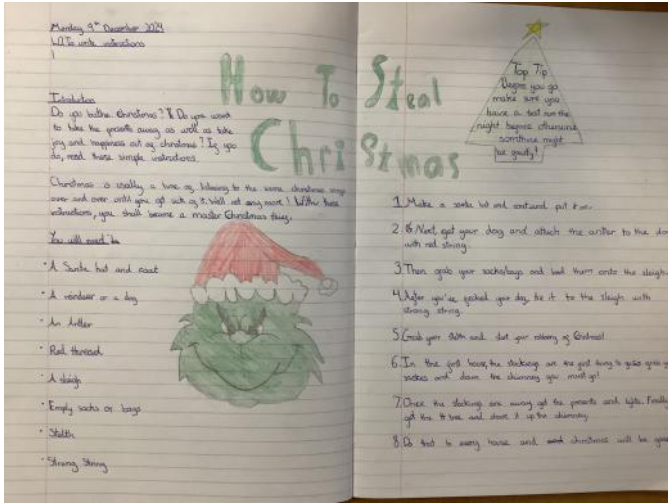 Monday 9th December 2024
LO: To write instructions
How To Steal
Christmas
Introduction
Do you loathe Christmas? Do you want
to take the presents away as well as take
joy and happiness out of christmas? If you
do, read these simple instructions.
Christmas is usually a time of listening to the same christmas songs
over and over until you get sick of it. Well not any more! With these
instructions, you shall become a master Christmas thief.
You will need:
• A Santa hat and coat
• A reindeer or a dog
• An Antler
• Red thread
• A sleigh
• Empty sacks or bags
• Stealth
• Strong String
Top Tip
Before you go
make sure you
have a test run the
night before otherwise
something might
be faulty!
1. Make a santa hat and coat and put it on.
2. Next, get your dog and attach the antler to the
with red string.
3. Then grab your sacks/bags and load them onto the sleigh.
4. After you've your dog, tie it to the sleigh with
strong string.
5. Grab your and start your robbery of
6. In the first house, the stockings are the first thing to
and down the chimney you must go!
7. Once the stockings are away get the presents and lights. Finally
get the tree and shove it up the chimney.
8. Do that to every house and christmas will be